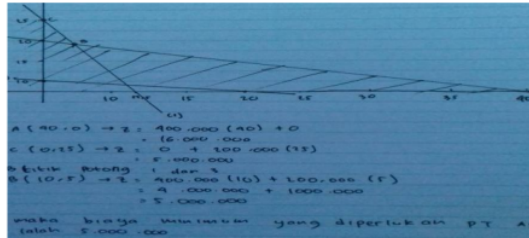 25 C
20 B
10
10 20 30 40
(1)
A (40,0) → Z = 400.000 (40) + 0
= 16.000.000
C (0,25) → Z = 0 + 200.000 (25)
= 5.000.000
titik Potong 1 dan 3
B (10,5) → Z = 400.000 (10) + 200.000 (5)
= 4.000.000 + 1000.000
= 5.000.000
maka biaya minimum yang diperlukan PT A
ialah 5.000.000